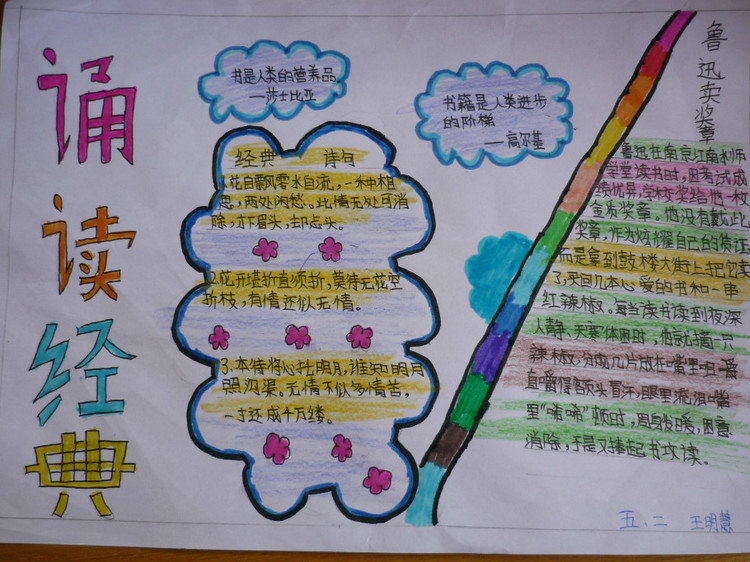 诵读经典
书是人类的营养品
—莎士比亚
书籍是人类进步
的阶梯
——高尔基
经典 诗句
1.花自飘零水自流，一种相
思，两处闲愁。此情无处可消
除，才下眉头，却上心头。
2.花开堪折直须折，莫待无花空
折枝，有情还似无情。
3.本待将心托明月，谁知明月
照沟渠。无情不似多情苦，
一寸还成千万缕。
鲁迅卖奖章
鲁迅在南京江南水师
学堂读书时，因考试成
绩优异，学校奖给他一枚
金质奖章。他没有戴此
奖章，作为炫耀自己的
而是拿到鼓楼大街上把它卖
了，买回几本心爱的书和一串
红辣椒。每当读书读到夜深
人静、天寒体困时，他就摘一只
辣椒，分成几片放在嘴里咀嚼
直嚼得额头冒汗，眼里流泪，嘴
里"唏唏"，顿时，周身发暖，困意
消除，于是又捧起书攻读。
五．二 王明慧